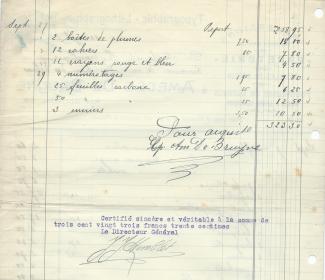 Sept. 27 Report 258.95
2 boîtes de plumes 7,50 15 00
12 cahiers 7.80
11 crayons rouge et bleu 4 50
29 4 numérotages 1,95 7.80
25 feuilles carbone 6 25
50 12 50
3 10 50
323 30
Pour acquit
Am. De Bruyne
Certifié sincère et véritable à la somme de
trois cent vingt trois francs trente centimes
Le Directeur Général